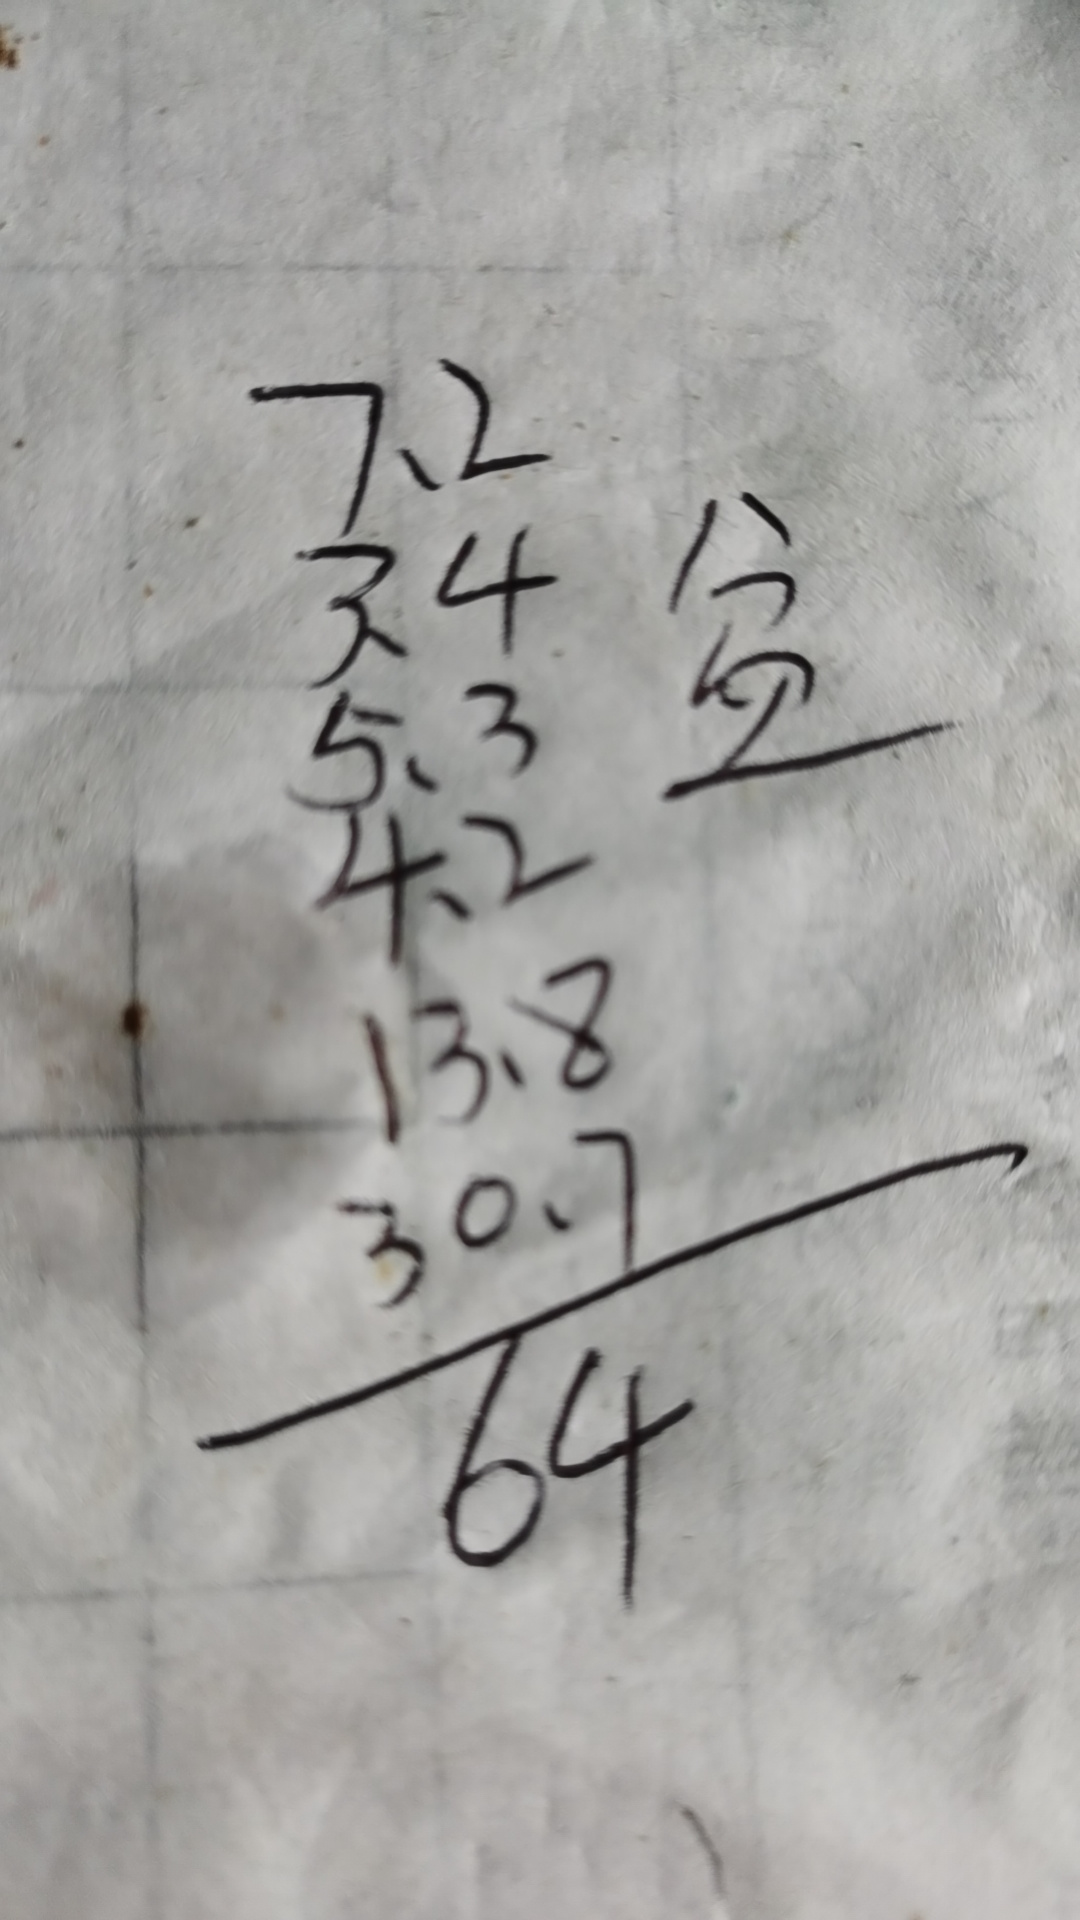 7.2
3.4
5.3
4.2
13.8
30.7
64